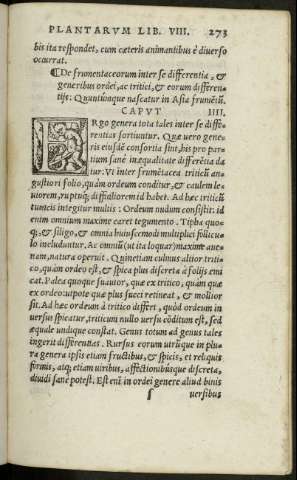 PLANTARVM LIB. VIII. 273
bis ita respondet, cum cæteris animantibus è diuerso
occurrat.
¶De frumentaceorum inter se differentia, &
generibus ordei, ac tritici, & eorum differen-
tijs: Quantũnaque nascatur in Asia frumẽtũ.
CAPVT IIII.
ERgo genera tota tales inter se diffe-
rentias sortiuntur. Quæ uero gene-
ris eiusdẽ consortia sint, his pro par-
tium sanè inæqualitate differẽtia da-
tur: Vt inter frumẽtacea triticũ an-
gustiori folio, quàm ordeum conditur, & caulem le-
uiorem, ruptuq; difficiliorem id habet. Ad hæc triticũ
tunicis integitur multis: Ordeum nudum consistit: id
enim omnium maxime caret tegumento. Tipha quo-
q;, & siligo, & omnia huiuscemodi multiplici follicu-
lo includuntur. Ac omniũ (ut ita loquar) maxime aue-
nam, natura operuit. Quinetiam culmus altior triti-
co, quàm ordeo est, & spica plus discreta à folijs emi
cat. Palea quoque suauior, quæ ex tritico, quàm quæ
ex ordeo: utpote quæ plus succi retineat, & molior
sit. Ad hæc ordeum à tritico differt, quòd ordeum in
uersus spicatur, triticum nullo uersu cõditum est, sed
æquale undique constat. Genus totum ad genus tales
ingerit differentias. Rursus eorum utrũque in plu-
ra genera ipsis etiam fructibus, & spicis, et reliquis
formis, atq; etiam uiribus, affectionibusque discreta,
diuidi sanè potest. Est enĩ in ordei genere aliud binis
s uersibus